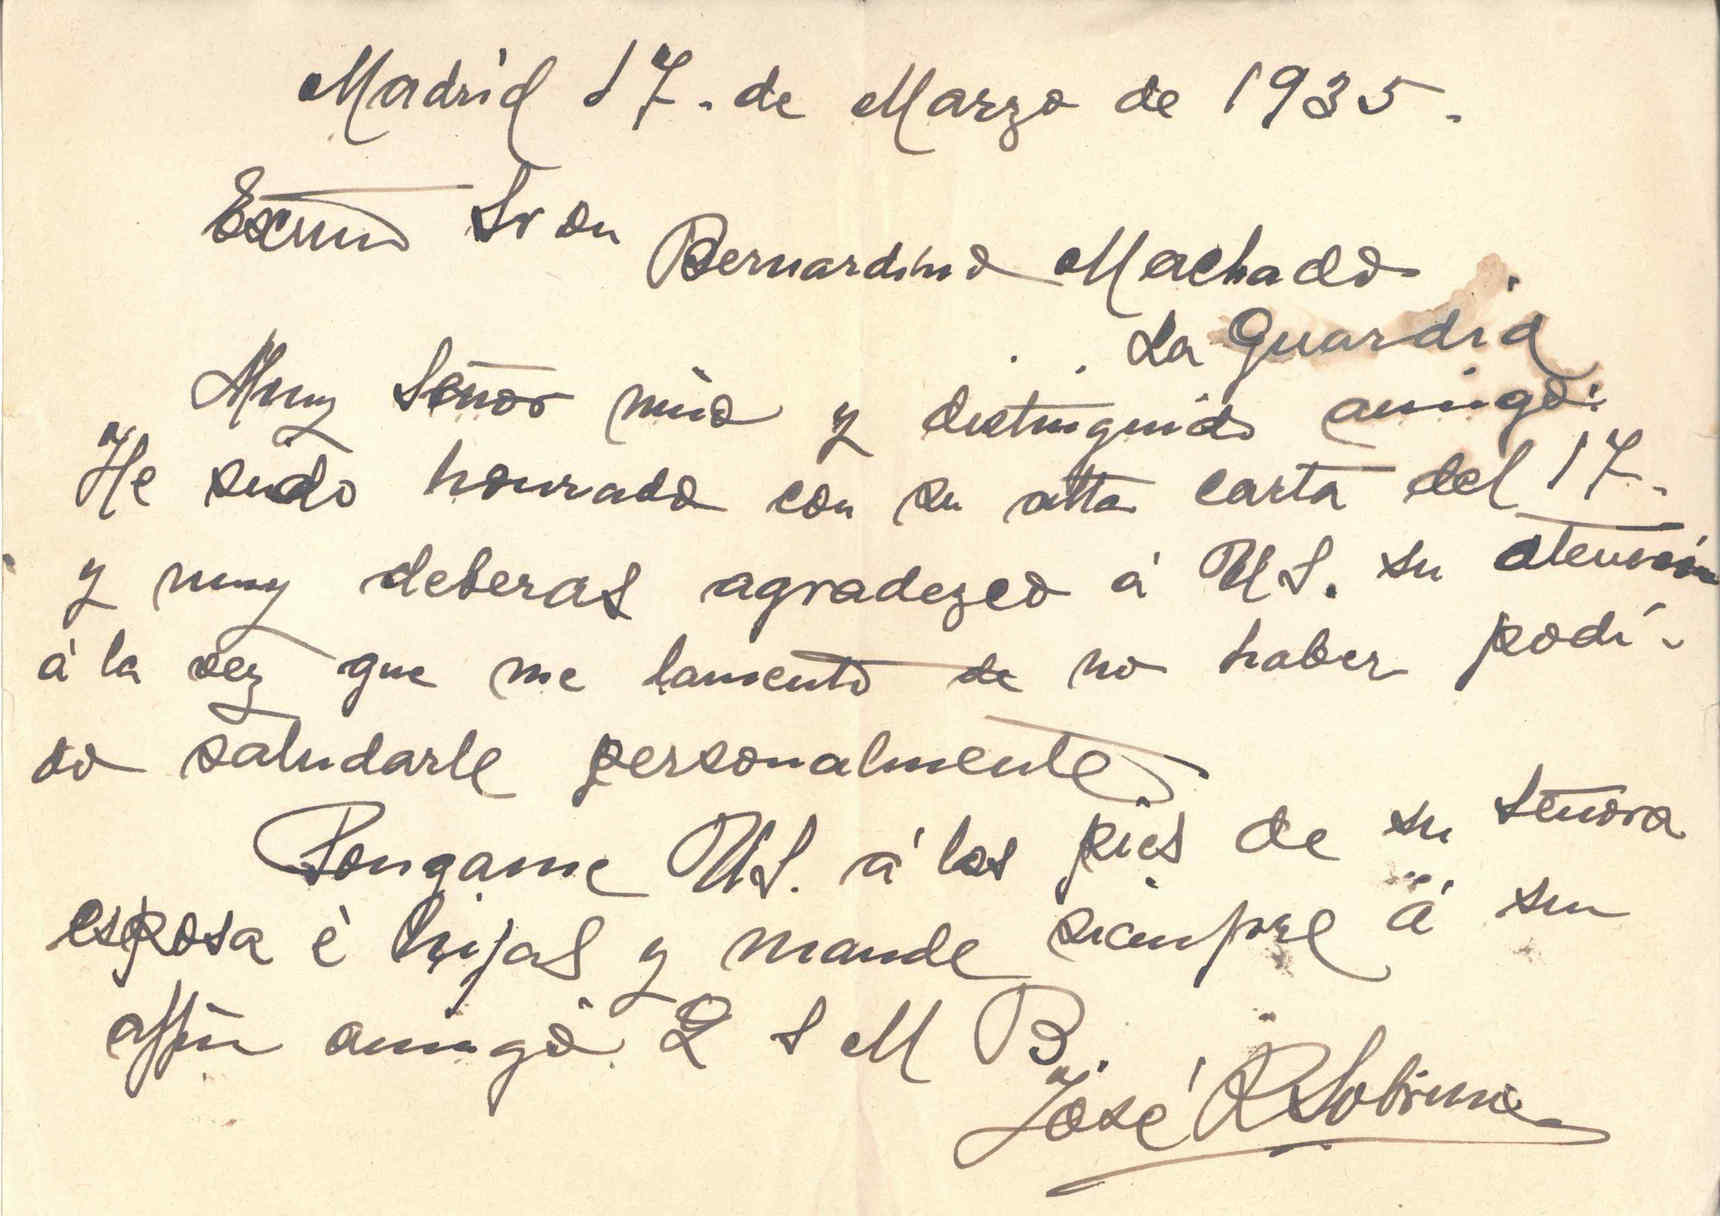 Madrid 17. de Marzo de 1935.
Excmo Sr Dn Bernardino Machado
La Guardia
Muy Señor mio y distinguido amigo:
He sido honrado con su atta carta del 17.
y muy deberas agradezco á US. su atencion
á la vez que me lamento de no haber podi-
do saludarle personalmente
Pongame US. á los pies de su Señora
esposa é hijas y mande siempre á su
affmo amigo Q S M B.
José R Sobrino